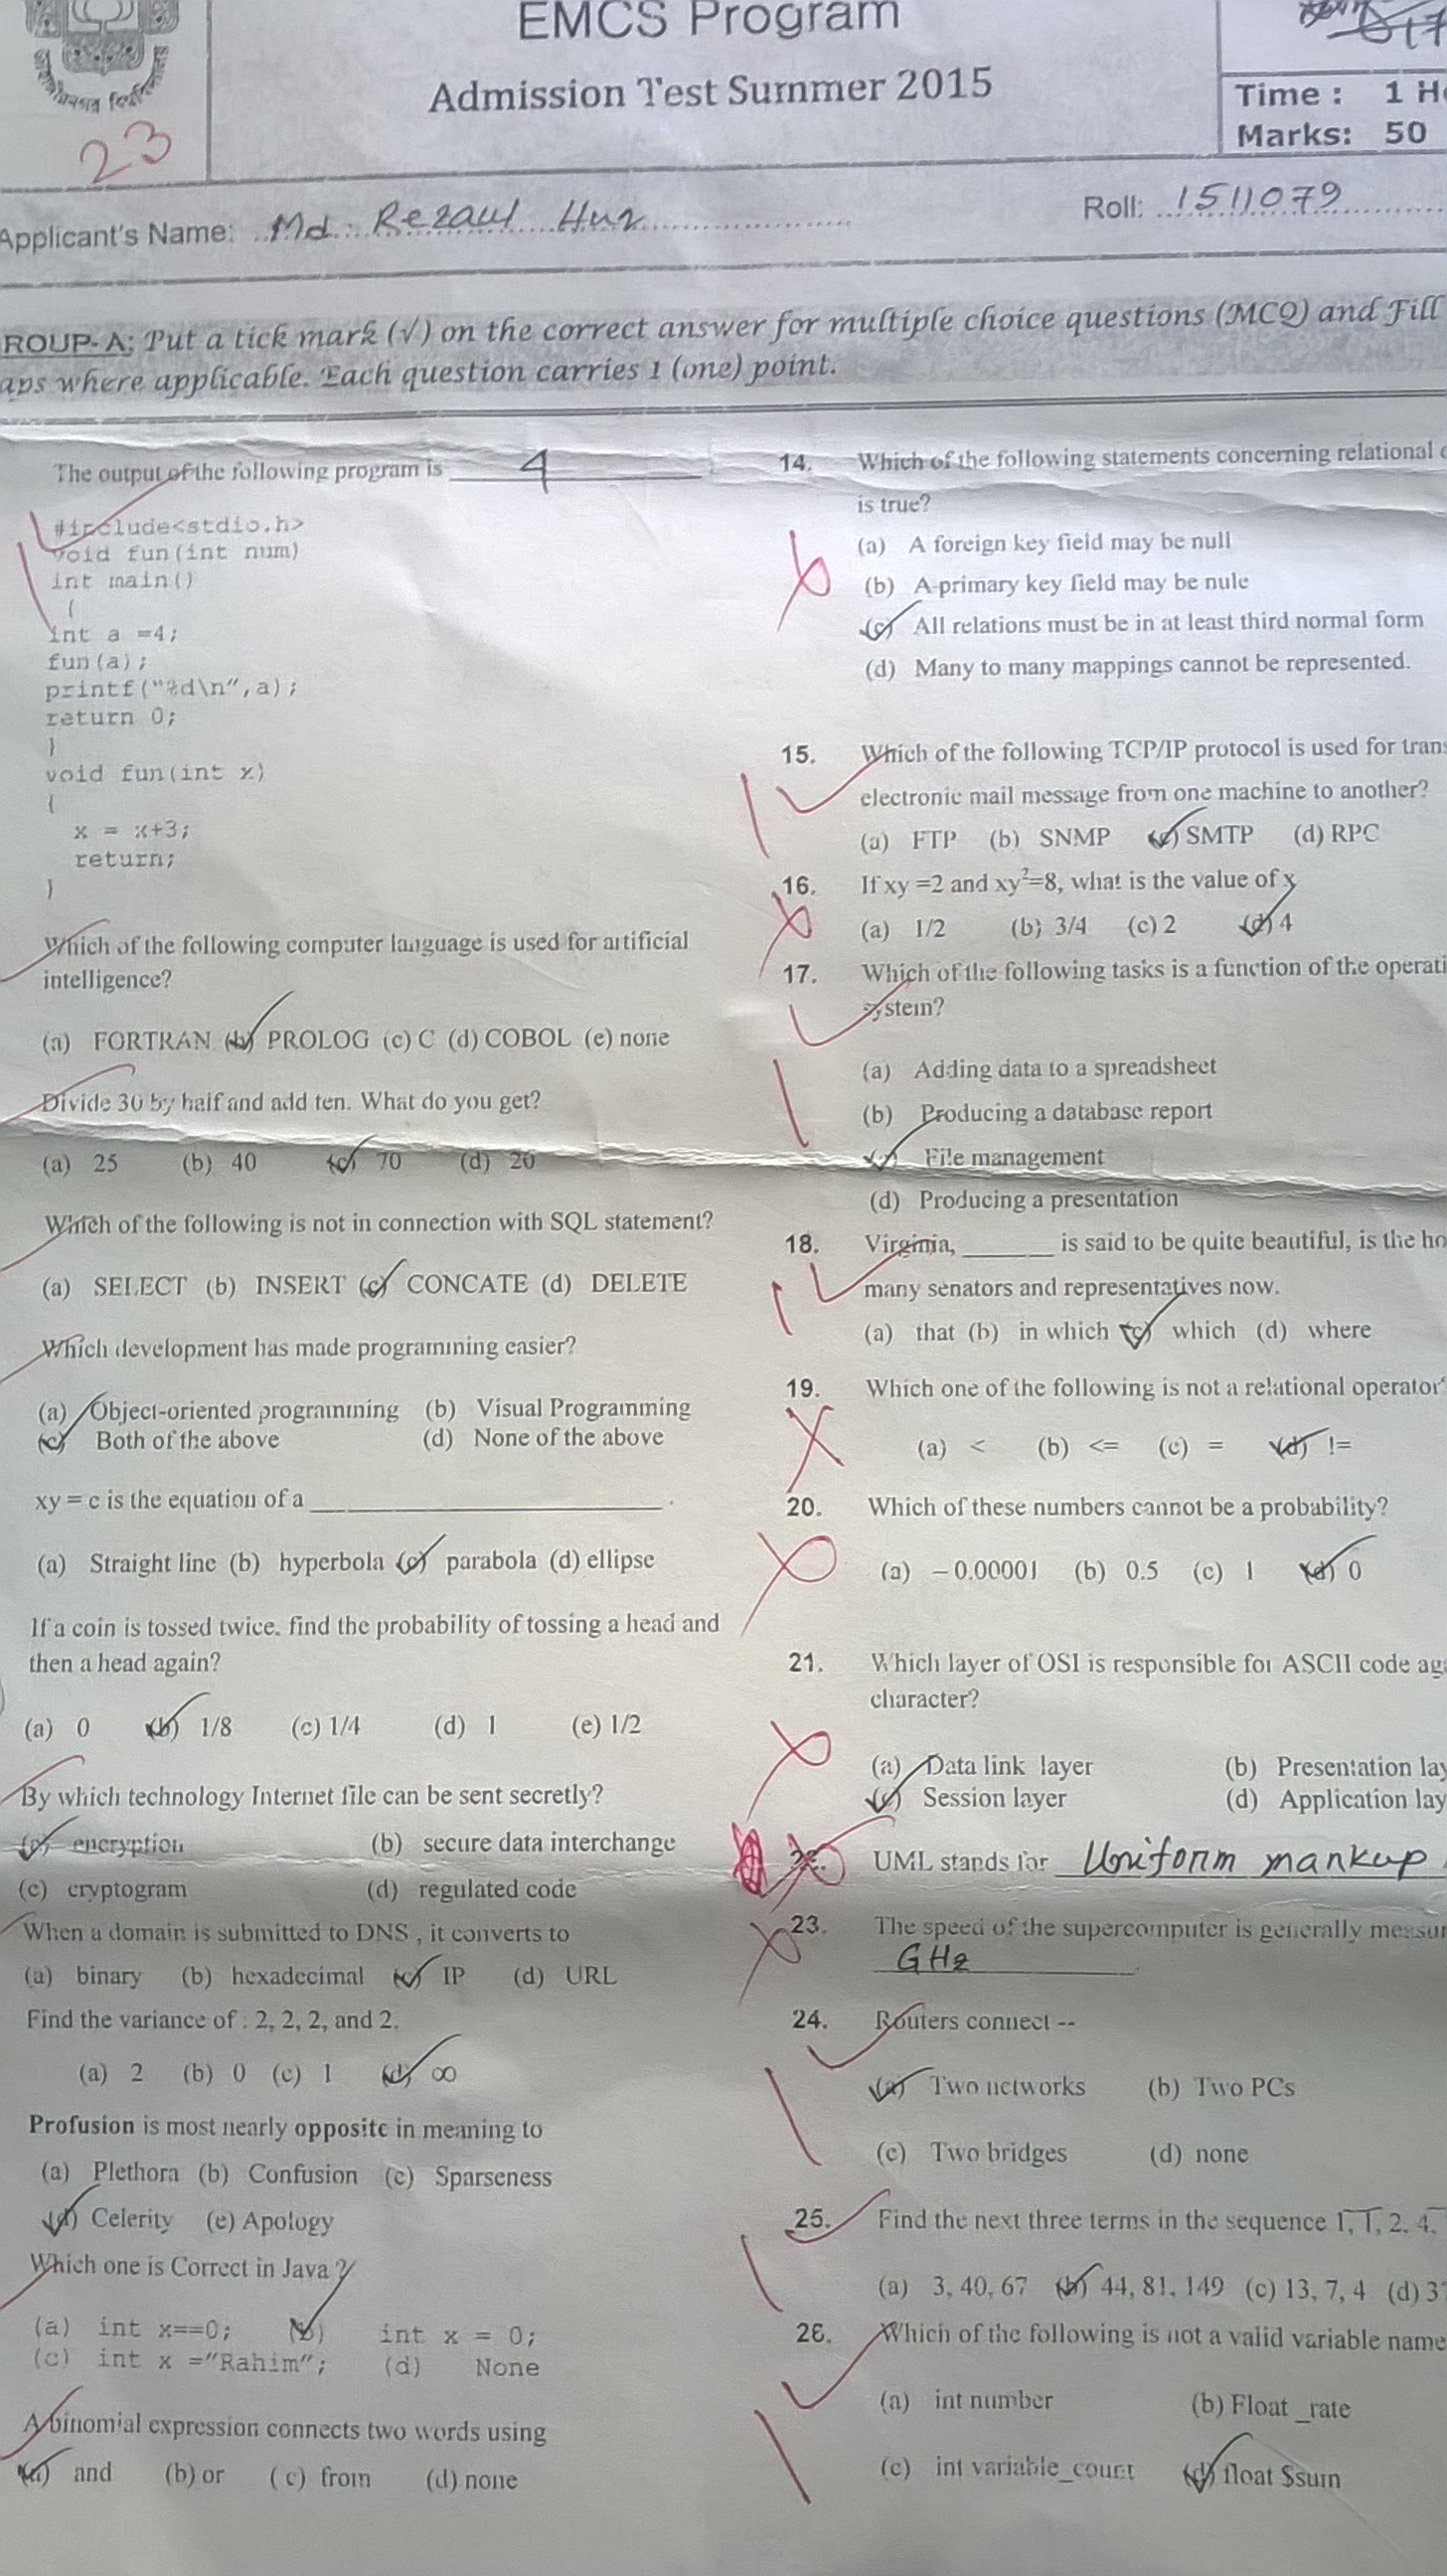 EMCS Program
Admission Test Summer 2015
Time : 1 H
Marks: 50
23
Applicant's Name: Md. Rezaul Huq
Roll: 1511079
ROUP-A: Put a tick mark (√) on the correct answer for multiple choice questions (MCQ) and Fill
aps where applicable. Each question carries 1 (one) point.
The output of the following program is 4
#include<stdio.h>
void fun(int num)
int main()
{
int a =4;
fun(a);
printf("%d\n",a);
return 0;
}
void fun(int x)
{
x = x+3;
return;
}
Which of the following computer language is used for artificial
intelligence?
(a) FORTRAN (b) PROLOG (c) C (d) COBOL (e) none
Divide 30 by half and add ten. What do you get?
(a) 25 (b) 40 (c) 70 (d) 20
Which of the following is not in connection with SQL statement?
(a) SELECT (b) INSERT (c) CONCATE (d) DELETE
Which development has made programming easier?
(a) Object-oriented programming (b) Visual Programming
(c) Both of the above (d) None of the above
xy = c is the equation of a ______.
(a) Straight line (b) hyperbola (c) parabola (d) ellipse
If a coin is tossed twice. find the probability of tossing a head and
then a head again?
(a) 0 (b) 1/8 (c) 1/4 (d) 1 (e) 1/2
By which technology Internet file can be sent secretly?
(a) encryption (b) secure data interchange
(c) cryptogram (d) regulated code
When a domain is submitted to DNS , it converts to
(a) binary (b) hexadecimal (c) IP (d) URL
Find the variance of : 2, 2, 2, and 2.
(a) 2 (b) 0 (c) 1 (d) ∞
Profusion is most nearly opposite in meaning to
(a) Plethora (b) Confusion (c) Sparseness
(d) Celerity (e) Apology
Which one is Correct in Java ?
(a) int x==0; (b) int x = 0;
(c) int x ="Rahim"; (d) None
A binomial expression connects two words using
(a) and (b) or ( c) from (d) none
14. Which of the following statements concerning relational
is true?
(a) A foreign key field may be null
(b) A primary key field may be nule
(c) All relations must be in at least third normal form
(d) Many to many mappings cannot be represented.
15. Which of the following TCP/IP protocol is used for trans
electronic mail message from one machine to another?
(a) FTP (b) SNMP (c) SMTP (d) RPC
16. If xy =2 and xy²=8, what is the value of x
(a) 1/2 (b) 3/4 (c) 2 (d) 4
17. Which of the following tasks is a function of the operati
system?
(a) Adding data to a spreadsheet
(b) Producing a database report
(c) File management
(d) Producing a presentation
18. Virginia, ______ is said to be quite beautiful, is the ho
many senators and representatives now.
(a) that (b) in which (c) which (d) where
19. Which one of the following is not a relational operator
(a) < (b) <= (c) = (d) !=
20. Which of these numbers cannot be a probability?
(a) – 0.00001 (b) 0.5 (c) 1 (d) 0
21. Which layer of OSI is responsible for ASCII code aga
character?
(a) Data link layer (b) Presentation lay
(c) Session layer (d) Application lay
22. UML stands for Uniform markup
23. The speed of the supercomputer is generally measur
GHz
24. Routers connect --
(a) Two networks (b) Two PCs
(c) Two bridges (d) none
25. Find the next three terms in the sequence 1, 1, 2, 4,
(a) 3, 40, 67 (b) 44, 81, 149 (c) 13, 7, 4 (d) 3
26. Which of the following is not a valid variable name
(a) int number (b) Float _rate
(c) int variable_count (d) float $sum